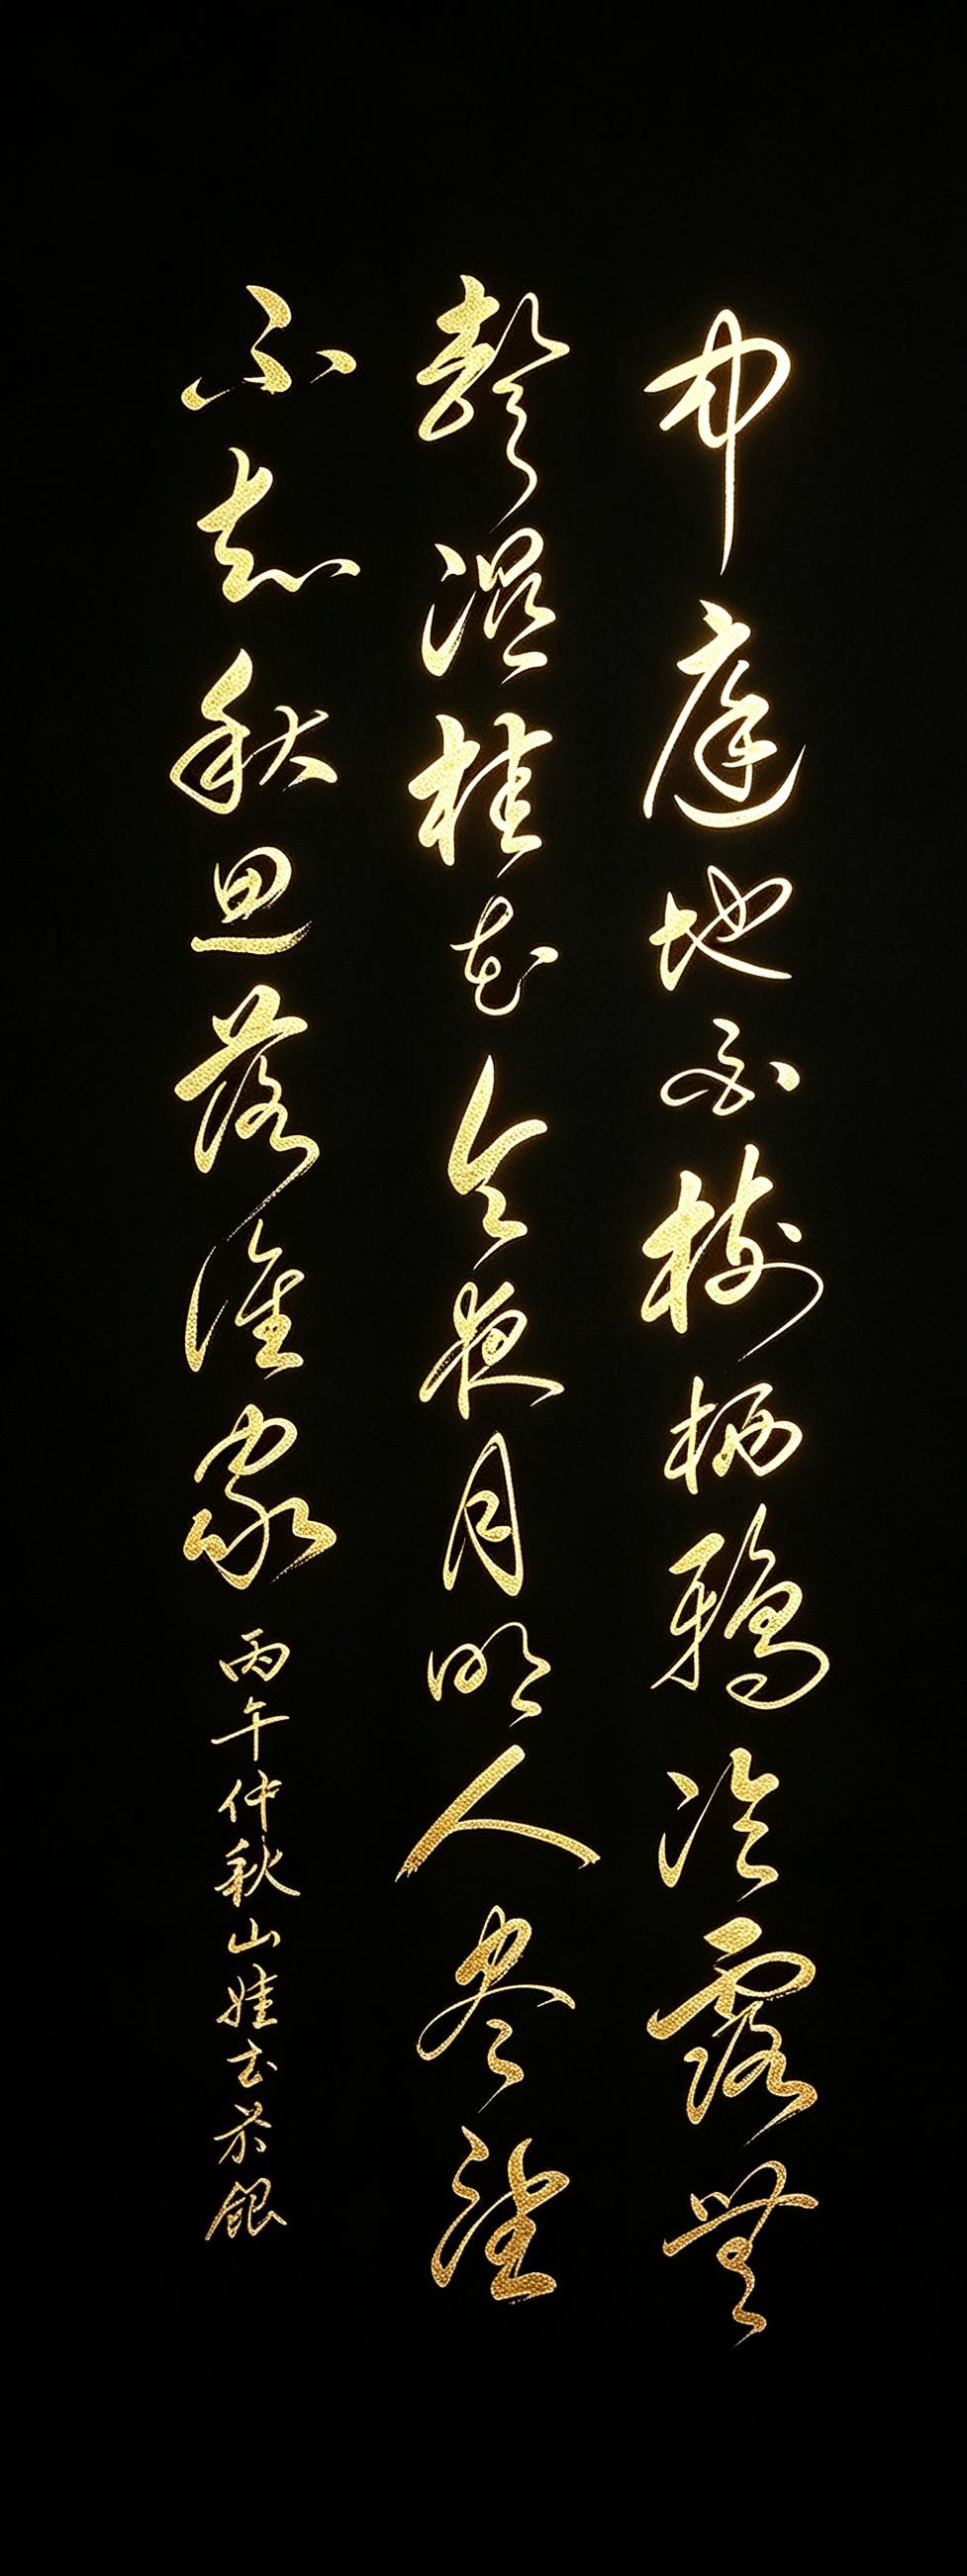 中庭地白树栖鸦冷露無
聲湿桂花今夜月明人尽望
不知秋思落谁家 丙午仲秋山娃书於銀